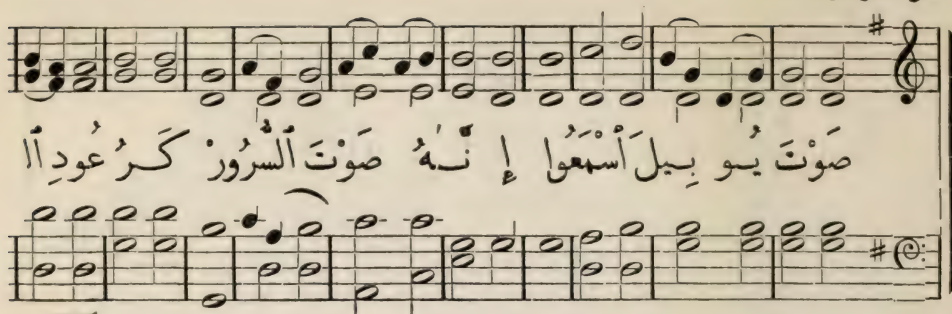 صَوْتَ يُو بِيلَ ٱسْمَعُوا إِ نَّـهُ صَوْتَ ٱلسُّرُورْ كَـرُ عُودِ ٱلْ